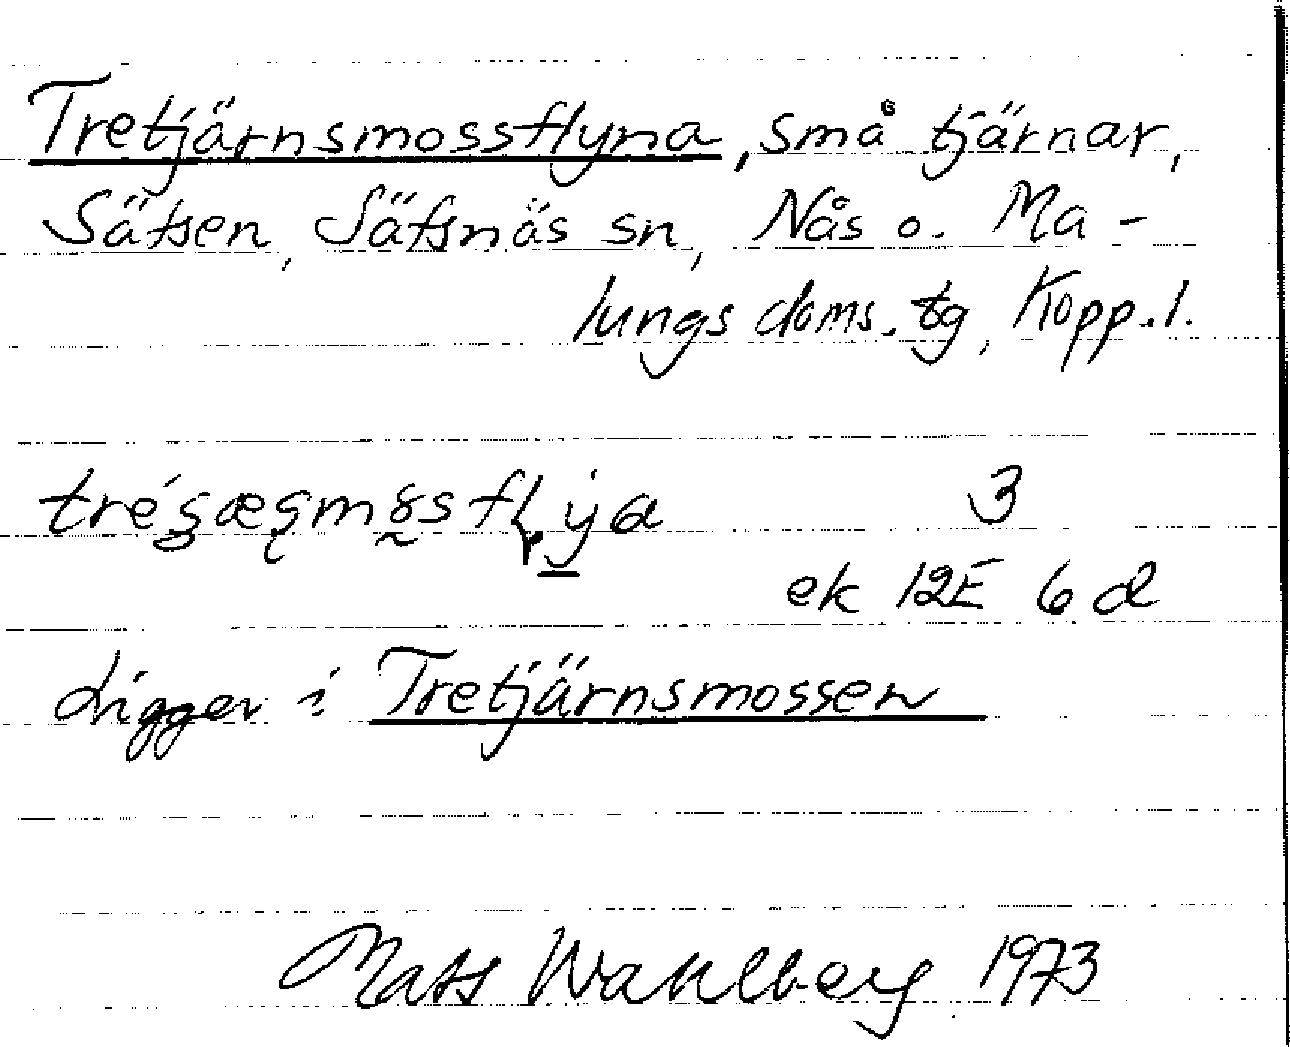 Tretjärnsmossflyna, små tjärnar,
Sätsen, Sätsnäs sn, Nås o. Ma-
lungs doms. tg, Kopp.l.
3
ek 12E 6d
Ligger i Tretjärnsmossen
Mats Wahlberg 1973